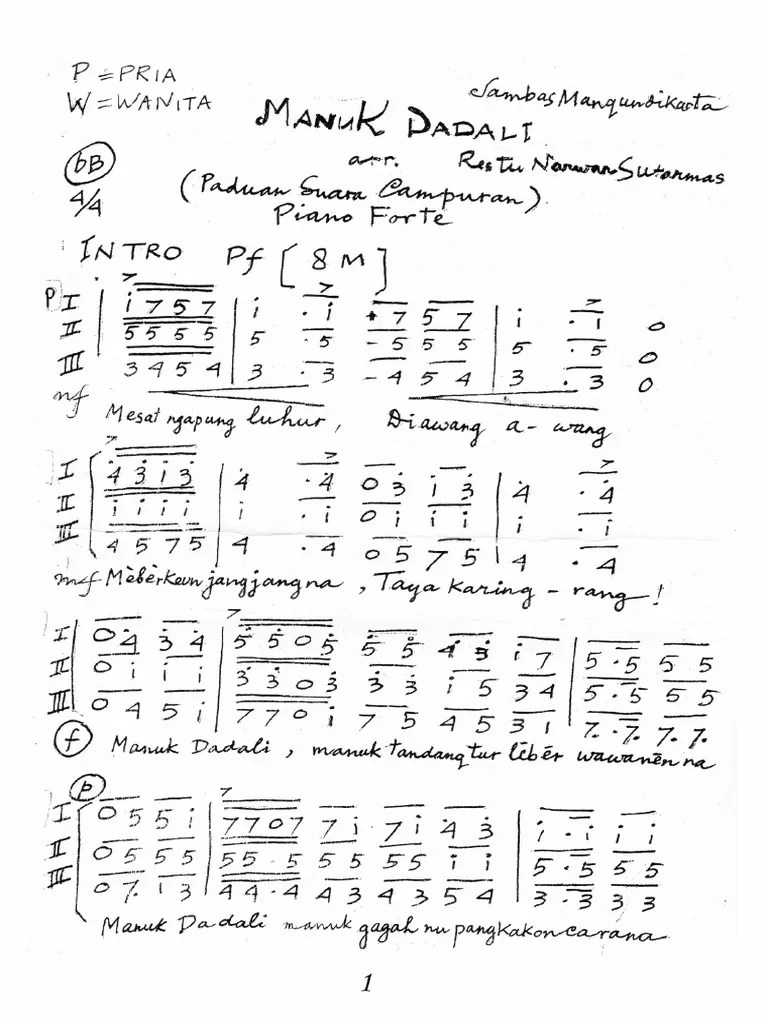 P = PRIA
W = WANITA
Sambas Mangundikarta
MANUK DADALI
bB
arr. Restu Narwan Sutarmas
4/4
(Paduan Suara Campuran)
Piano Forte
INTRO Pf [ 8 M ]
p I | i 7 5 7 | i . i + 7 5 7 | i . i 0
II 5 5 5 5 | 5 . 5 - 5 5 5 | 5 . 5 0
III 3 4 5 4 | 3 . 3 - 4 5 4 | 3 . 3 0
mf
Mesat ngapung luhur, Diawang a-wang
I 4 3 i 3 | 4 . 4 0 3 i 3 | 4 . 4
II i i i i | i . i 0 i i i | i . i
III 4 5 7 5 | 4 . 4 0 5 7 5 | 4 . 4
mf Mèbèrkeun jangjangna, Taya karing-rang!
I 0 4 3 4 | 5 5 0 5 5 5 4 3 i 7 | 5 . 5 5 5
II 0 i i i | 3 3 0 3 3 3 i 5 3 4 | 5 . 5 5 5
III 0 4 5 i | 7 7 0 i 7 5 4 5 3 1 | 7 . 7 7 7
f Manuk Dadali, manuk tandang tur lēbēr wawanēn na
p
I 0 5 5 i | 7 7 0 7 7 i . 7 i 4 3 | i . i i i
II 0 5 5 5 | 5 5 . 5 5 5 5 5 i i | 5 . 5 5 5
III 0 7 1 3 | 4 4 . 4 4 3 4 3 5 4 | 3 . 3 3 3
Manuk Dadali manuk gagah nu pangkakoncarana
1